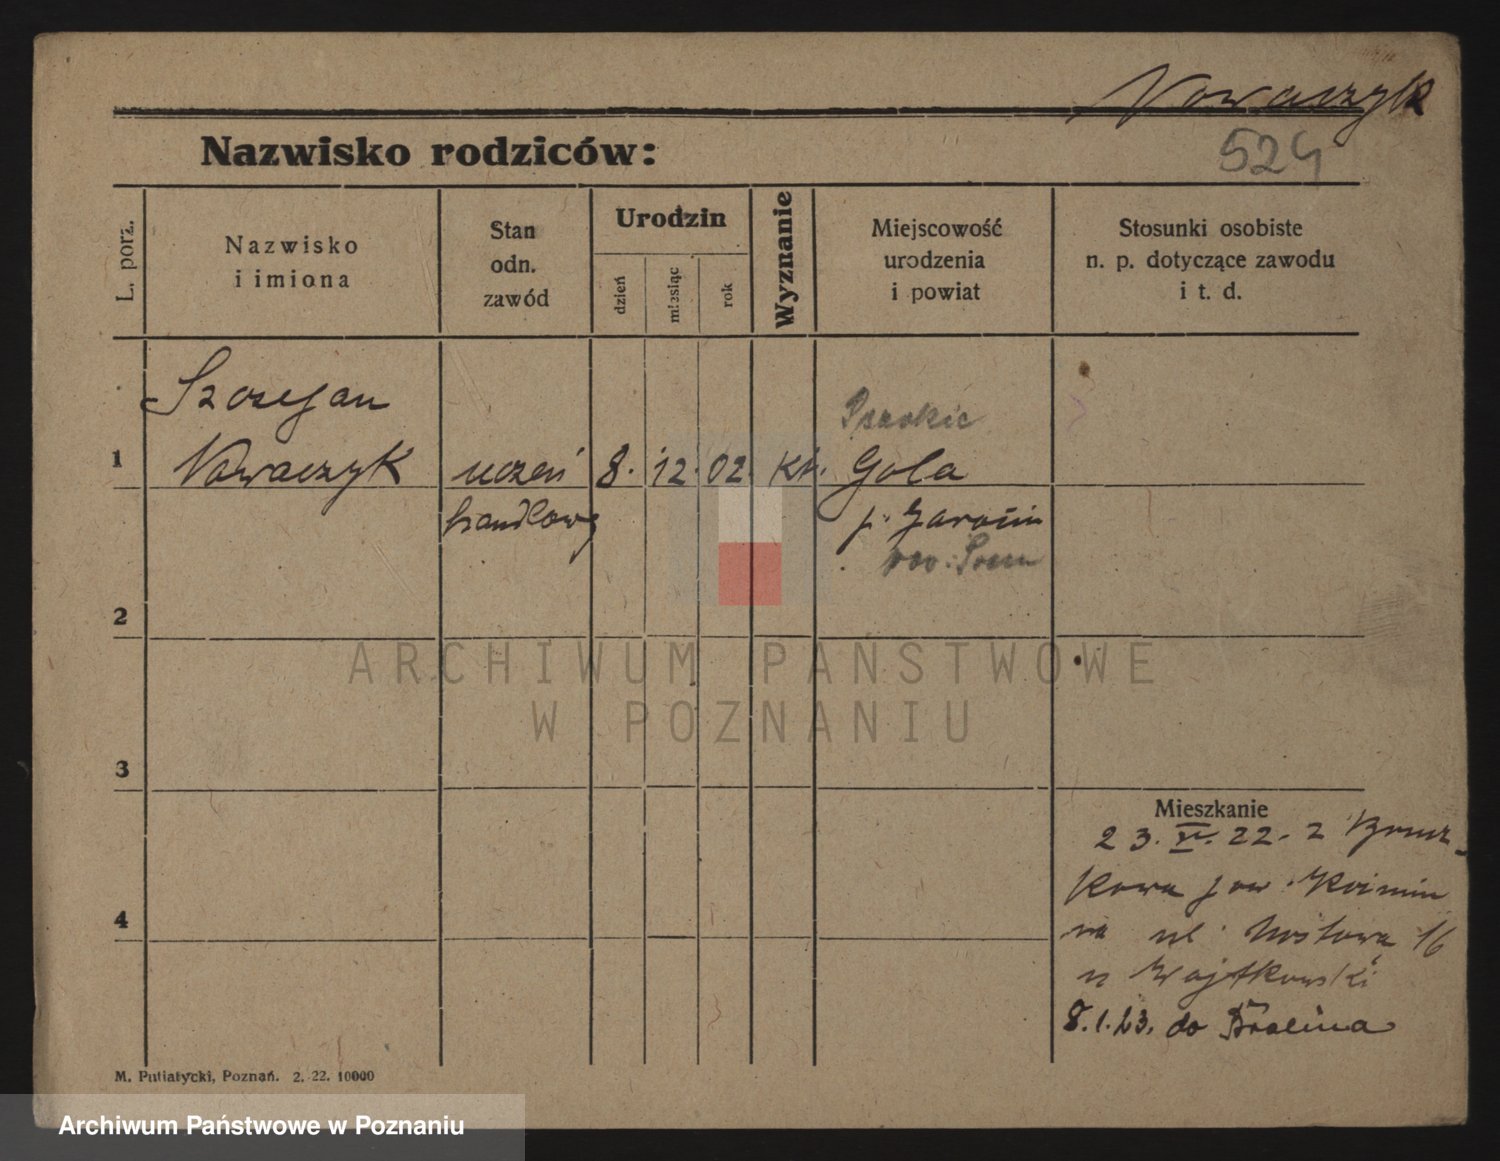 Nowaczyk
524
Nazwisko rodziców:
L. porz.
Nazwisko
i imiona
Stan
odn.
zawód
Urodzin
dzień
miesiąc
rok
Wyznanie
Miejscowość
urodzenia
i powiat
Stosunki osobiste
n. p. dotyczące zawodu
i t. d.
Szczepan
1 Nowaczyk uczeń 8. 12. 02. kt. Gola
handlowy p. Jarocin
2
ARCHIWUM PAŃSTWOWE
W POZNANIU
3
Mieszkanie
23. VI. 22. z
kowa pow. Koźmin
na ul. Mostowa 16
u Wojtkowski
4
8.1.23. do
M. Putiatycki, Poznań. 2. 22. 10000
Archiwum Państwowe w Poznaniu